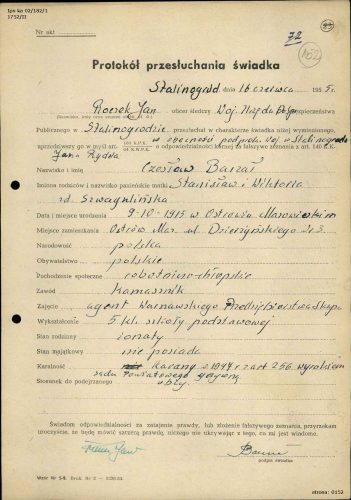 Ipn ka 02/182/1
1752/II
Nr akt
72
152
Protokół przesłuchania świadka
Stalinogród dnia 16 czerwca 1955 r.
Jan oficer śledczy Woj. Urzędu Bezpieczeństwa
(Nazwisko, imię oraz stopień
Publicznego w Stalinogrodzie przesłuchał w charakterze świadka niżej wymienionego,
uprzedzając go w myśl art. odpowiedzialności karnej za fałszywe zeznania z art. 140 K.K.
w obecności podprok. Woj. w Stalinogrodzie
Jana Rydza
Nazwisko i imię Czesław
Imiona rodziców i nazwisko panieńskie matki Stanisław i Wiktoria
Data i miejsce urodzenia 9-10-1915 w Ostrowiu Mazowieckim
Miejsce zamieszkania Ostrów Maz. ul. Dzierżyńskiego
Narodowość polska
Obywatelstwo polskie
Pochodzenie społeczne robotniczo-chłopskie
Zawód kamasznik
Zajęcie agent Warszawskiego Przedsiębiorstwa Skupu
Wykształcenie 5 kl. szkoły podstawowej
Stan rodzinny żonaty
Stan majątkowy nie posiada
Karalność karany z art 256. wyrokiem
sądu Powiatowego
Stosunek do podejrzanego obcy
Świadom odpowiedzialności za zatajenie prawdy, lub złożenie fałszywego zeznania, przyrzekam
uroczyście, że będę mówić szczerą prawdę, niczego nie ukrywając z tego, co mi jest wiadome.
podpis świadka
Wzór Nr 5-S. Druk Nr 2
strona: 0152